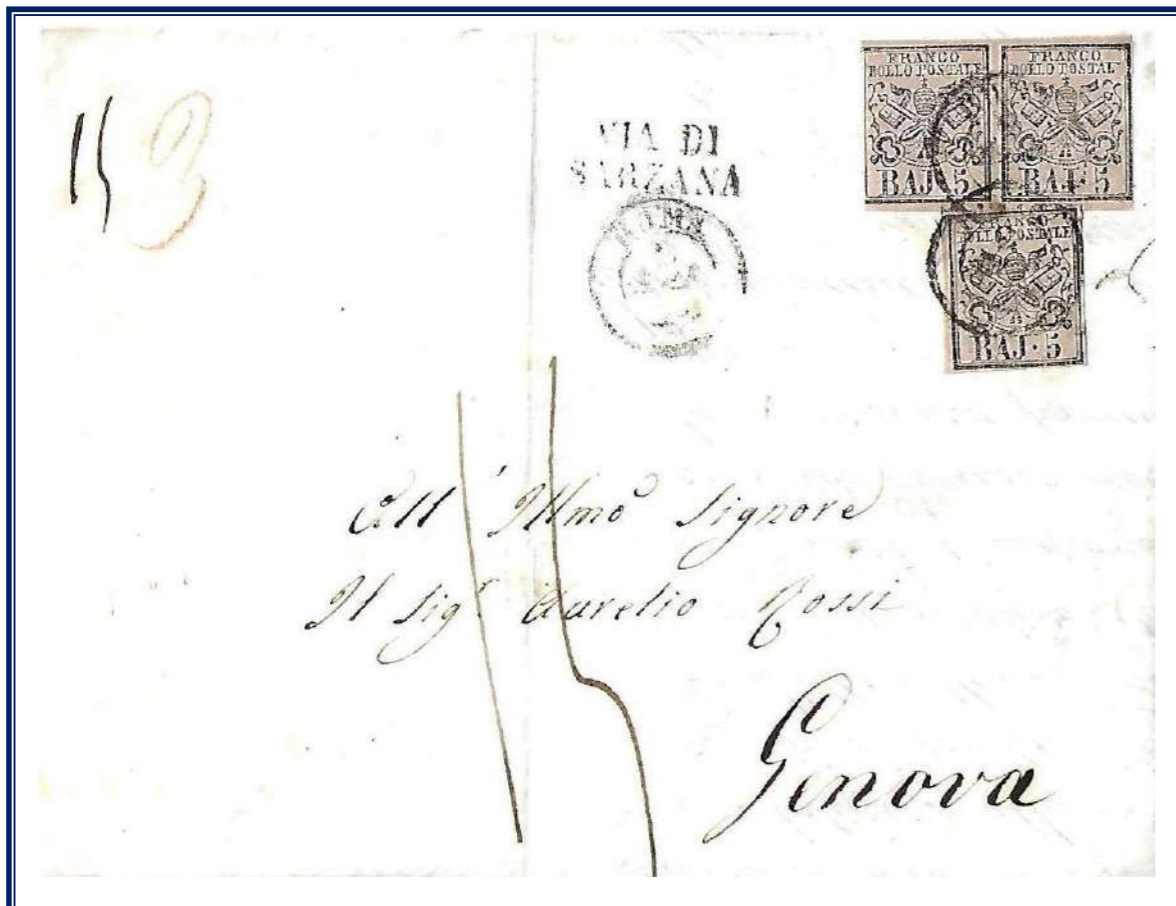 15
VIA DI
SARZANA
ROMA
FRANCO
BOLLO POSTALE
BAJ·5
FRANCO
BOLLO POSTAL
BAJ·5
FRANCO
BOLLO POSTALE
BAJ·5
15
All' Illmo Signore
Il Sigr Aurelio Rossi
Genova